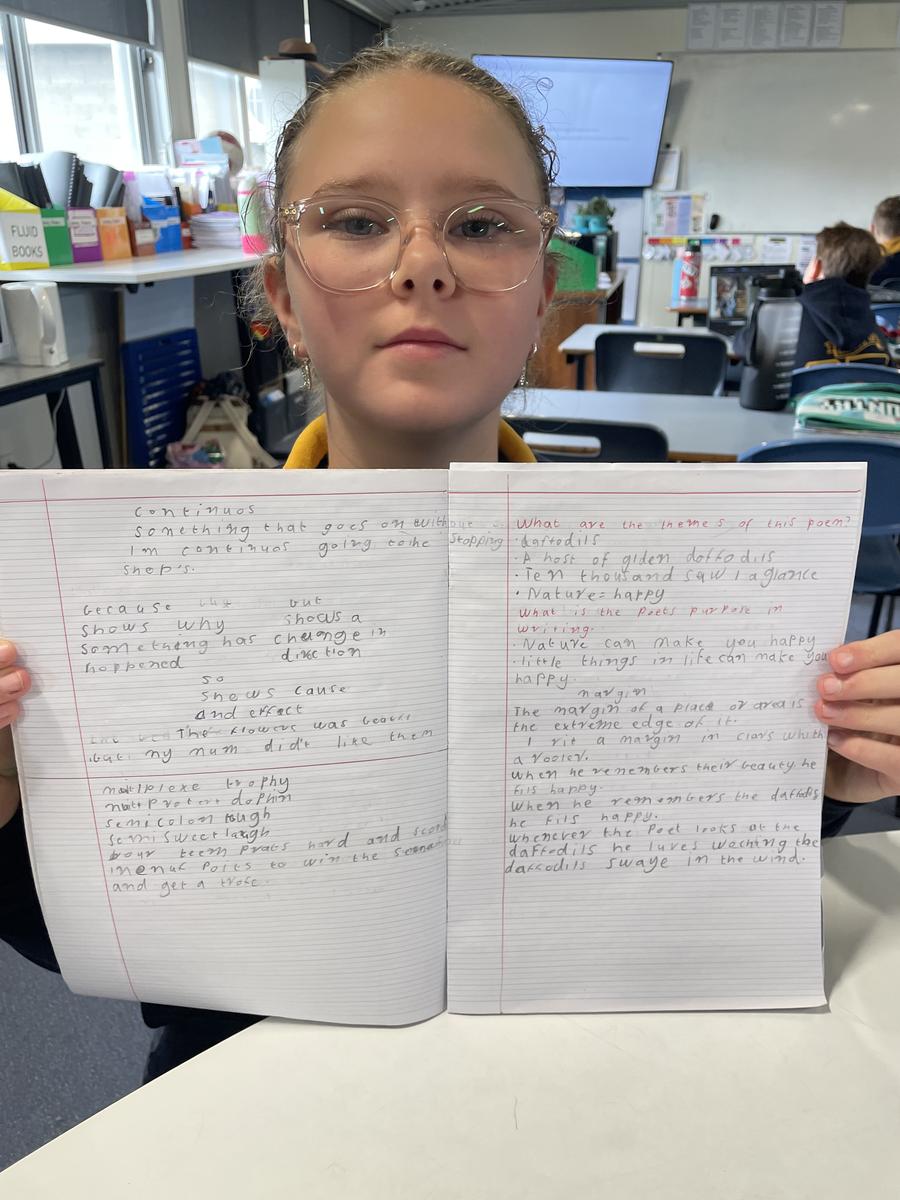 FLUID
BOOKS
continuos
something that goes on without
stopping
Im continuos going to the
shop's.
because but
shows why shows a
something has change in
happened direction
so
shows cause
and effect
The flowers was
but my mum did't like them
trophy
dophin
semicolon tough
semisweet laugh
hard and
to win the
and get a
What are the themes of this poem?
· daffodils
· A host of glden daffodils
· Ten thousand saw I a glance
· Nature = happy
What is the Poets purpose in
writing.
· Nature can make you happy
· little things in life can make you
happy.
margin
The margin of a place or area is
the extreme edge of it.
I rit a margin in clars whith
a rooler.
When he remembers their beauty, he
fils happy.
When he remembers the daffodils
he fils happy.
whenever the Poet looks at the
daffodils he luves waching the
daffodils swaye in the wind.